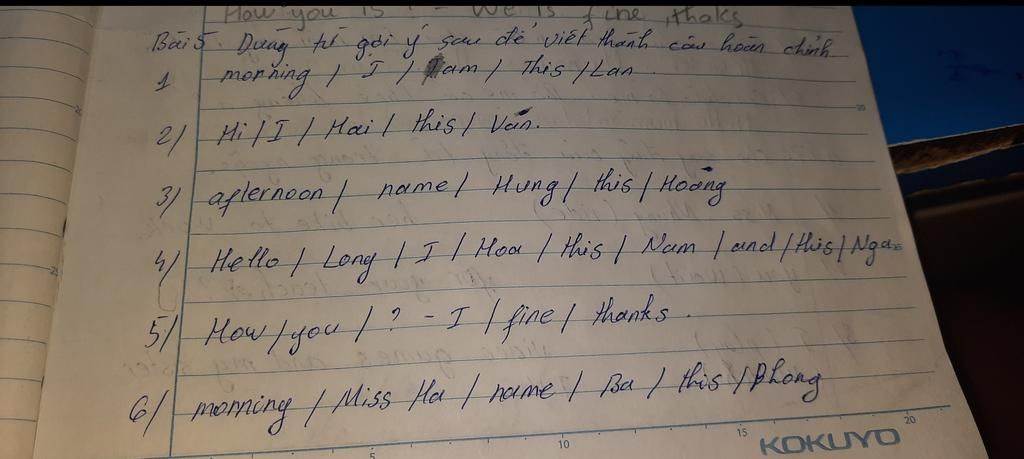 How you is ? - We is fine, thaks
Bài 5 Dùng từ gợi ý sau để viết thành câu hoàn chỉnh
1 morning / I / Nam / This / Lan
2) Hi / I / Mai / this / Vân.
3) afternoon / name / Hung / this / Hoàng
4) Hello / Long / I / Hoa / this / Nam / and / this / Nga
5) How / you / ? - I / fine / thanks.
6) morning / Miss Ha / name / Ba / this / Phong
5 10 15 20
KOKUYO